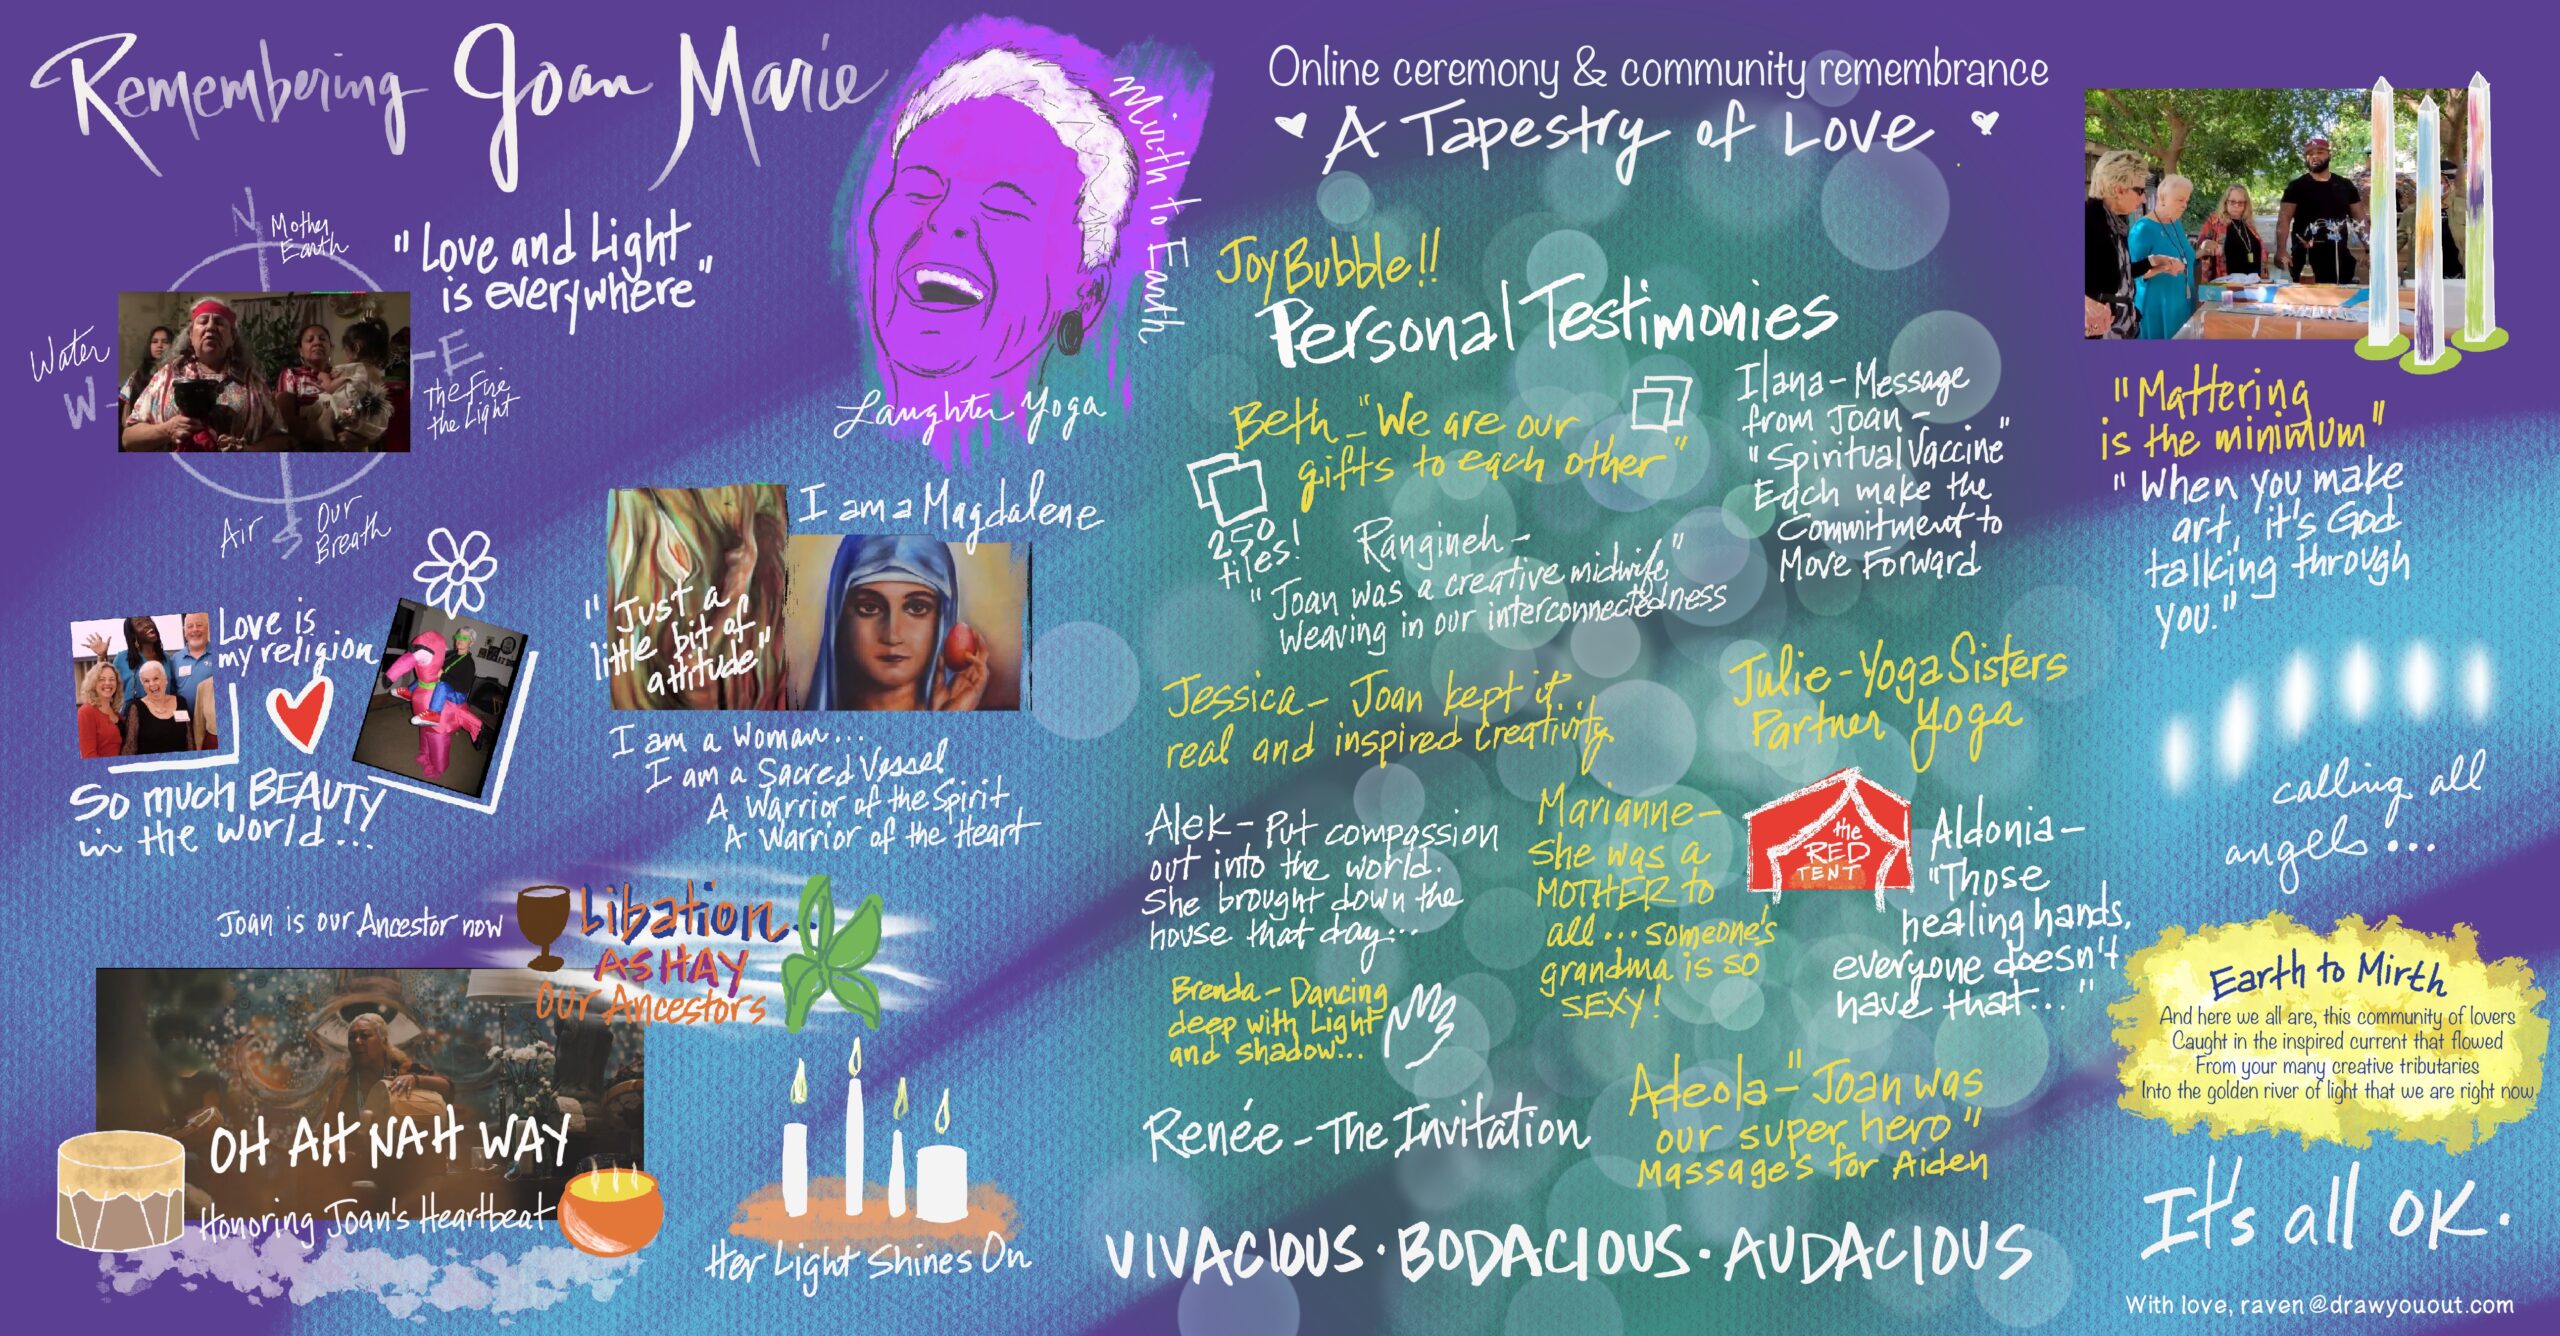 Remembering Joan Marie
Mirth to Earth
Laughter Yoga
N
Mother
Earth
"Love and Light
is everywhere"
Water
W
E
The Fire
the Light
Air
S
Our
Breath
Love is
my religion
So much BEAUTY
in the world...
I am a Magdalene
"Just a
little bit of
attitude"
I am a Woman...
I am a Sacred Vessel
A Warrior of the Spirit
A Warrior of the Heart
Joan is our Ancestor now
Libation...
ASHAY
Our Ancestors
OH AH NAH WAY
Honoring Joan's Heartbeat
Her Light Shines On
Online ceremony & community remembrance
A Tapestry of Love
Joy Bubble!!
Personal Testimonies
Beth - "We are our
gifts to each other"
250
tiles!
Ilana - Message
from Joan -
"Spiritual Vaccine"
Each make the
Commitment to
Move Forward
Rangineh -
"Joan was a creative midwife"
Weaving in our interconnectedness
Jessica - Joan kept it...
real and inspired creativity
Julie - Yoga Sisters
Partner Yoga
Alek - Put compassion
out into the world.
She brought down the
house that day...
Marianne -
She was a
MOTHER to
all... someone's
grandma is so
SEXY!
the
RED
TENT
Aldonia -
"Those
healing hands,
everyone doesn't
have that..."
Brenda - Dancing
deep with Light
and shadow...
Renée - The Invitation
Adeola - "Joan was
our super hero"
Massage's for Aiden
VIVACIOUS · BODACIOUS · AUDACIOUS
"Mattering
is the minimum"
"When you make
art, it's God
talking through
you."
calling all
angels...
Earth to Mirth
And here we all are, this community of lovers
Caught in the inspired current that flowed
From your many creative tributaries
Into the golden river of light that we are right now
It's all OK.
With love, raven@drawyouout.com